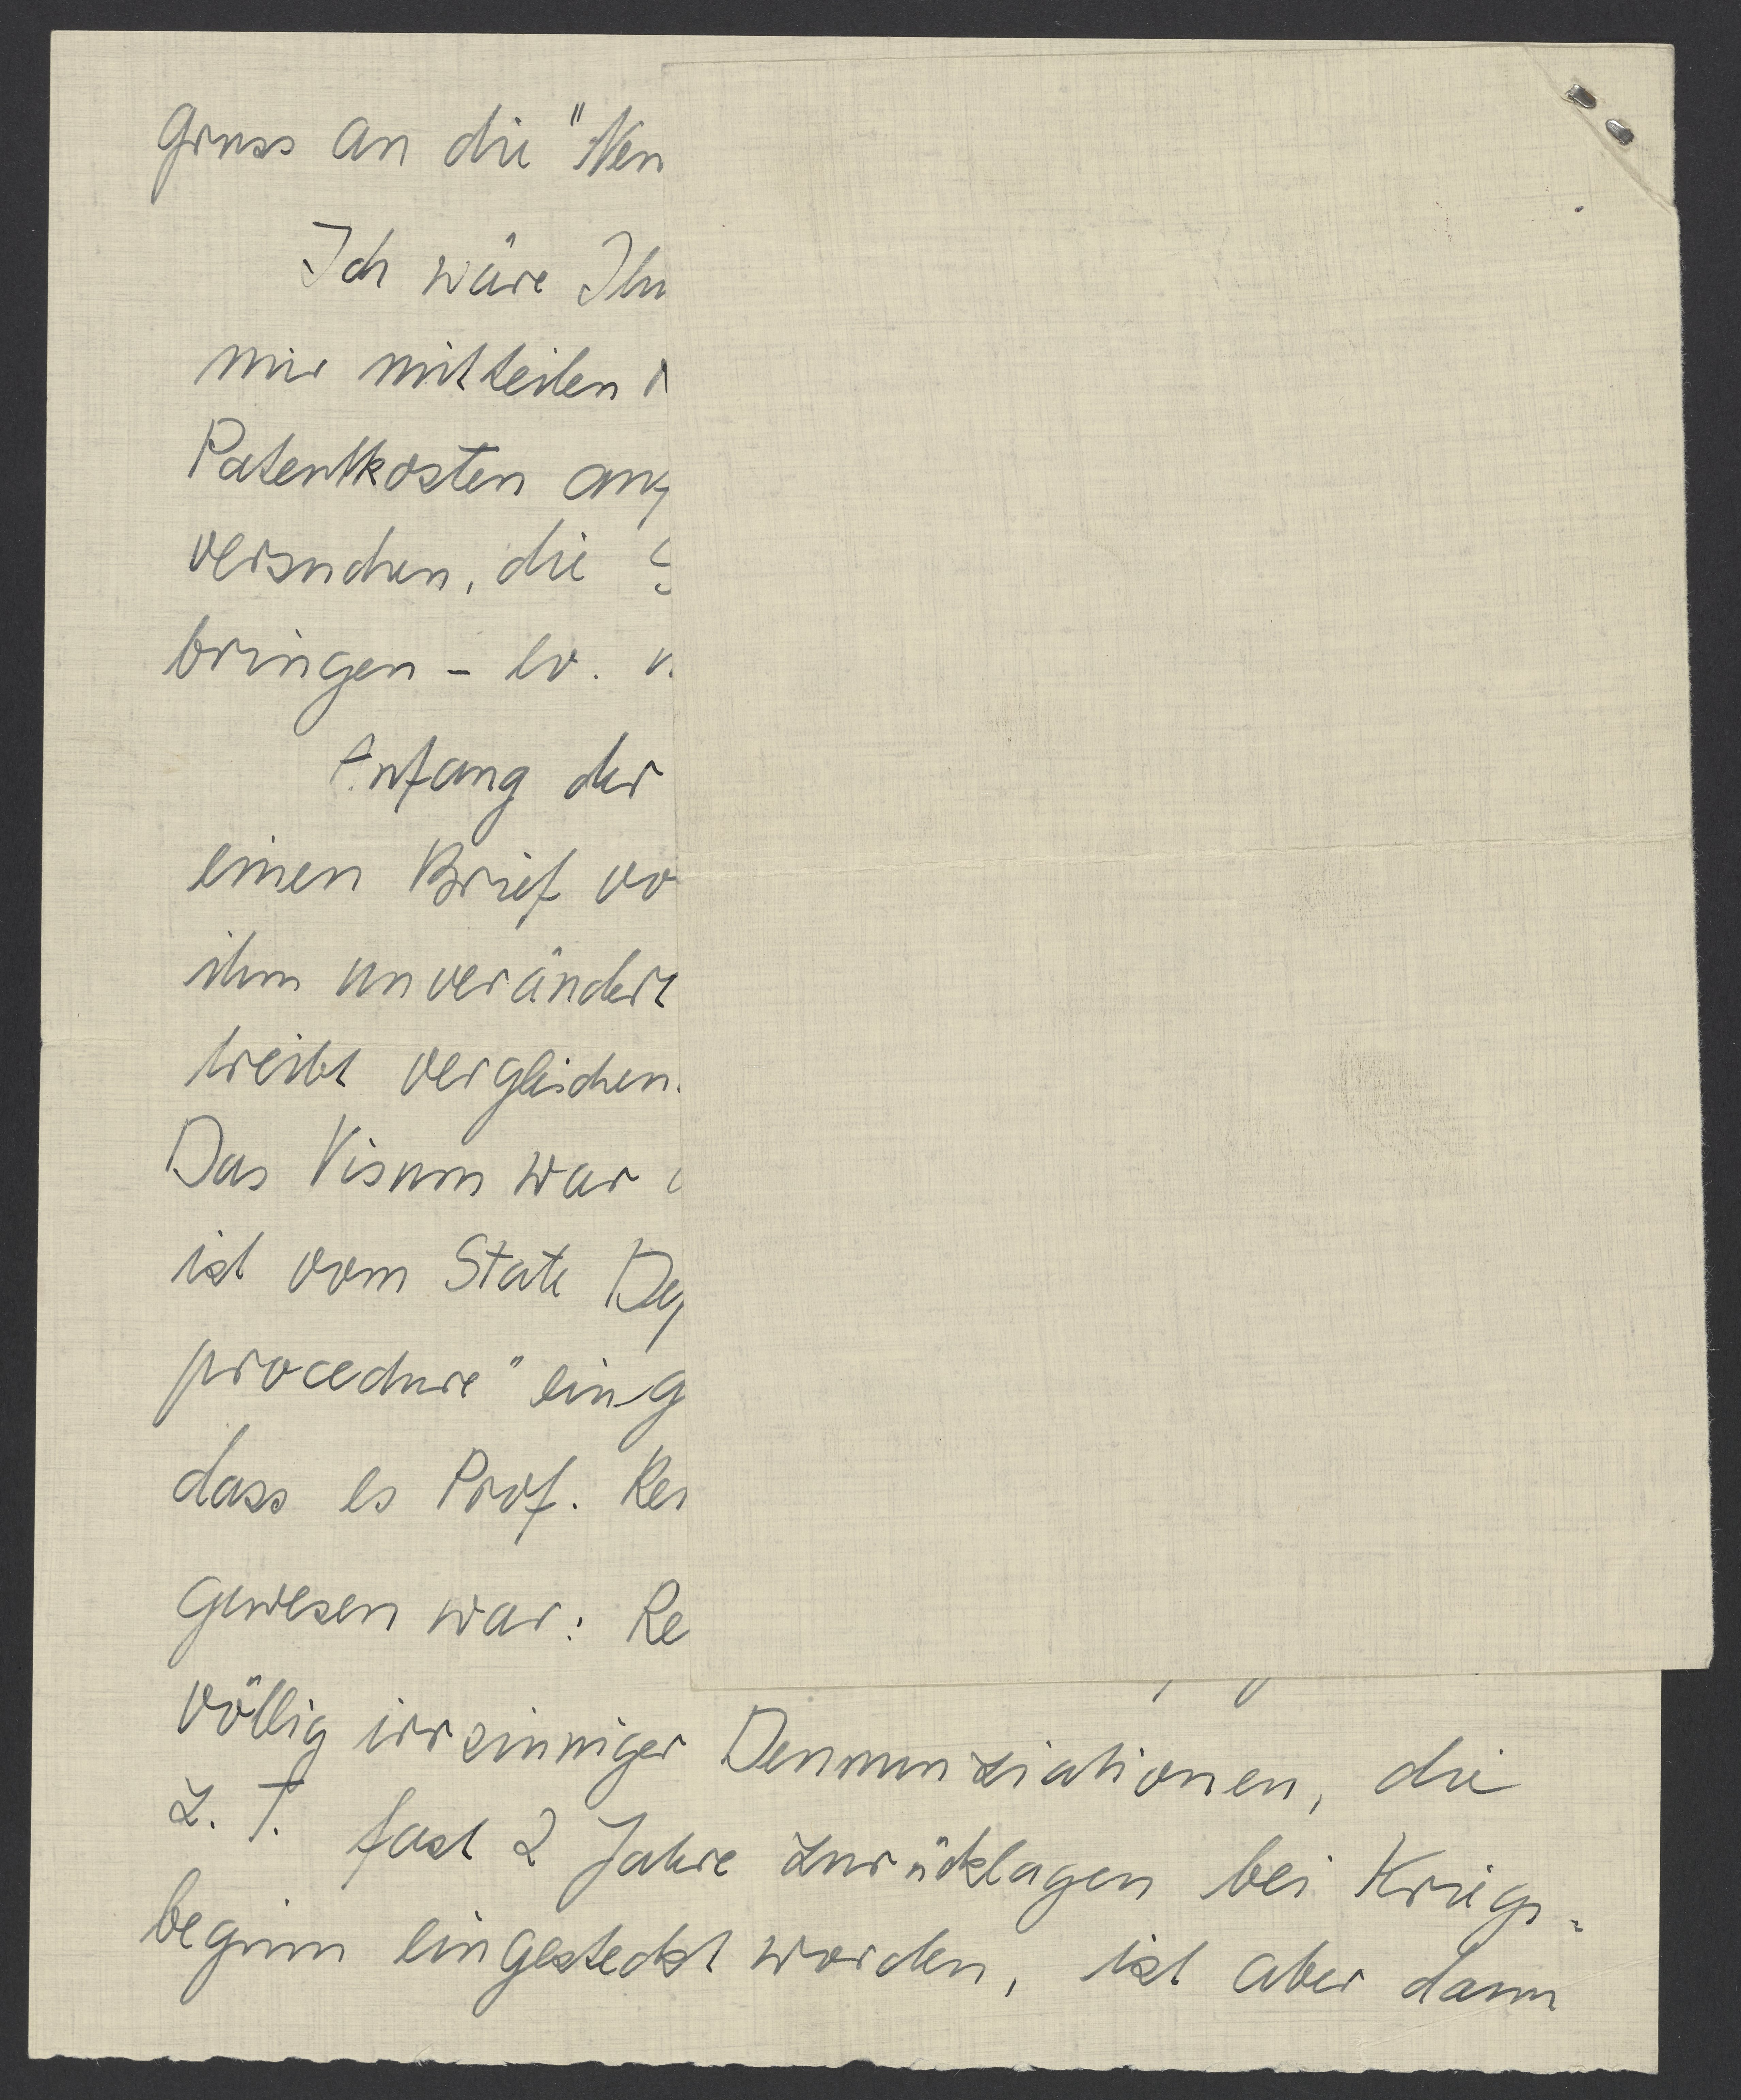 Gruss an die "Neu
Ich wäre Ihn
mir mitteilen
Patentkosten
versuchen, die
bringen - ev.
Anfang der
einen Brief vo
ihm unverändert
treibt vergleichen.
Das Visum war
ist vom State Dep
procedure" eing
dass es Prof. Rei
gewesen war: Re
völlig irrsinniger Denunziationen, die
z. T. fast 2 Jahre zurücklagen bei Kriegs-
beginn eingesteckt worden, ist aber dann